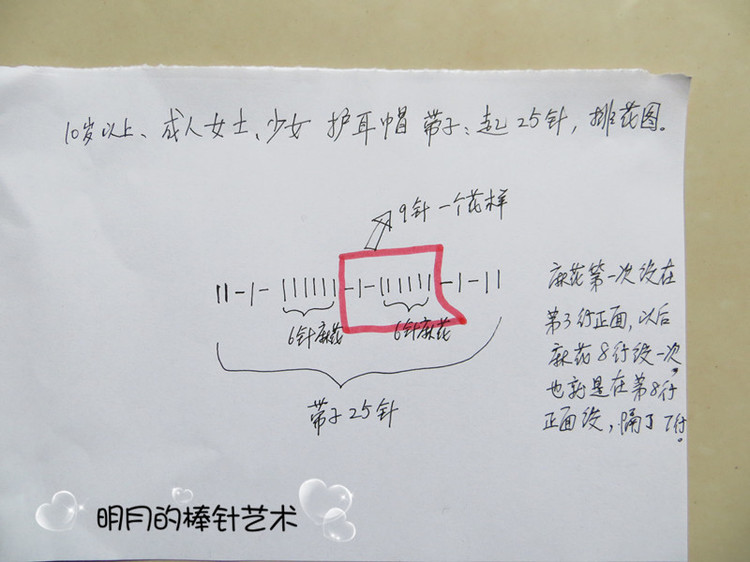 10岁以上、成人女士、少女 护耳帽 带子:起25针,排花图。
9针一个花样
|| - | - |||||| - | - |||||| - | - ||
6针麻花 6针麻花
带子25针
麻花第一次设在
第3行正面,以后
麻花8行设一次,
也就是在第8行
正面设,隔了7行。
明月的棒针艺术